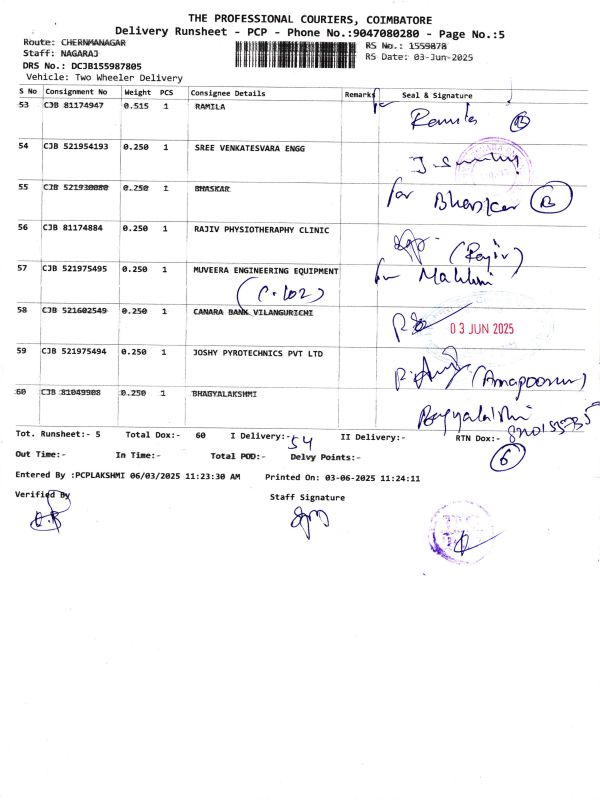 THE PROFESSIONAL COURIERS, COIMBATORE
Delivery Runsheet - PCP - Phone No.:9047080280 - Page No.:5
Route: CHERNMANAGAR
RS No.: 1559878
Staff: NAGARAJ
RS Date: 03-Jun-2025
DRS No.: DCJB155987805
Vehicle: Two Wheeler Delivery
S No Consignment No Weight PCS Consignee Details Remarks Seal & Signature
53 CJB 81174947 0.515 1 RAMILA Ramila B
54 CJB 521954193 0.250 1 SREE VENKATESVARA ENGG
55 CJB 521930080 0.250 1 BHASKAR for Bhaskar B
56 CJB 81174884 0.250 1 RAJIV PHYSIOTHERAPHY CLINIC (Rajiv)
57 CJB 521975495 0.250 1 MUVEERA ENGINEERING EQUIPMENT for
(C.102)
58 CJB 521602549 0.250 1 CANARA BANK VILANGURICHI 03 JUN 2025
59 CJB 521975494 0.250 1 JOSHY PYROTECHNICS PVT LTD
60 CJB 81049908 0.250 1 BHAGYALAKSHMI
Tot. Runsheet:- 5 Total Dox:- 60 I Delivery:- 54 II Delivery:- RTN Dox:- 6
Out Time:- In Time:- Total POD:- Delvy Points:-
Entered By :PCPLAKSHMI 06/03/2025 11:23:30 AM Printed On: 03-06-2025 11:24:11
Verified By
Staff Signature